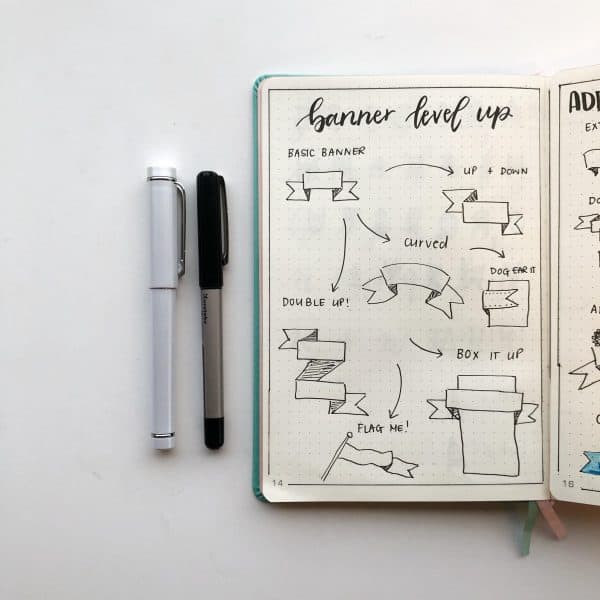 banner level up
BASIC BANNER
UP + DOWN
curved
DOG EAR IT
DOUBLE UP!
BOX IT UP
FLAG ME!
14
16